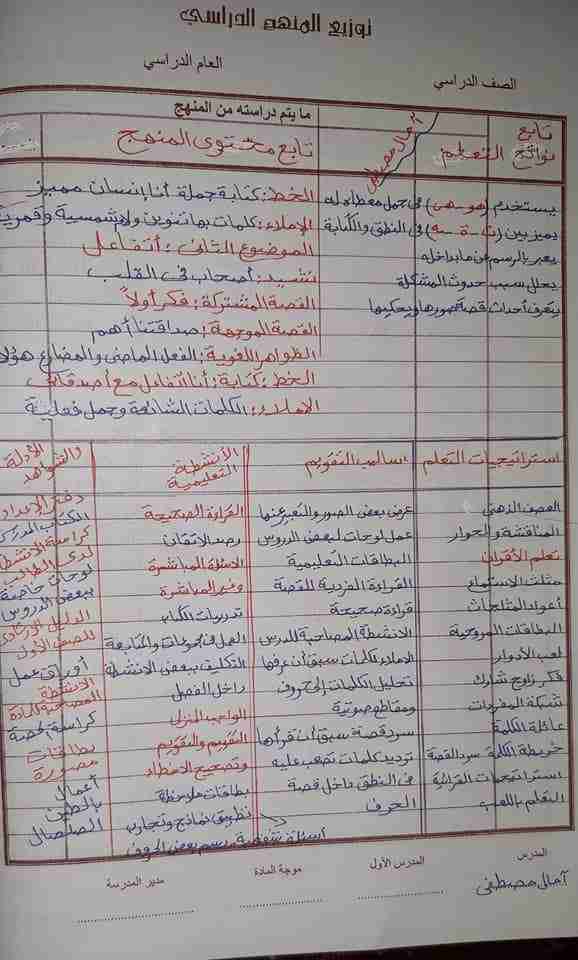 توزيع المنهج الدراسي
العام الدراسي
الصف الدراسي
ما يتم دراسته من المنهج
تابع
نواتج التعلم
آمال مصطفى
تابع محتوى المنهج
يستخدم (هو - هي) في جمل معطاه له
يميز بين (ت - ة - ـه) في النطق والكتابة
يعبر بالرسم عن ما بداخله
يحلل سبب حدوث المشكلة
يتعرف أحداث قصة بصورها ويحكيها
الخط : كتابة جملة أنا إنسان مميز
الإملاء : كلمات بها تنوين ولام شمسية وقمرية
الموضوع الثاني : أتفاعل
نشيد : أصحاب في القلب
القصة المشتركة : فكر أولاً
القصة الموجهة : صداقتنا أهم
الظواهر اللغوية : الفعل الماضي والمضارع هؤلاء
الخط : كتابة : أنا أتفاعل مع أصدقائي
الإملاء : الكلمات الشائعة وجمل فعلية
استراتيجيات التعلم
العصف الذهني
المناقشة والحوار
تعلم الأقران
مثلث الاستماع
أعواد المثلجات
البطاقات المروحية
لعب الأدوار
فكر زاوج شارك
شبكة المفردات
عائلة الكلمة
خريطة الكلمة سرد القصة
استراتيجيات القرائية
التعلم باللعب
أساليب التقويم
عرض بعض الصور والتعبير عنها
عمل لوحات لبعض الدروس
البطاقات التعليمية
القراءة الفردية للقصة
قراءة صحيحة
الأنشطة المصاحبة للدرس
الإملاء لكلمات سبق أن عرفها
تحليل الكلمات إلى حروف
ومقاطع صوتية
سرد قصة سبق أن قرأها
ترديد كلمات تصعب عليه
في النطق داخل قصة
الحرف
الأنشطة
التعليمية
القراءة الصحيحة
رصد الإتقان
الأسئلة المباشرة
وغير المباشرة
تدريبات الكتاب
العمل في مجموعات والمتابعة
التكليف ببعض الأنشطة
داخل الفصل
الواجب المنزلي
التقويم والتقويم
وتصحيح الأخطاء
بطاقات ملاحظة
تطبيق نماذج وتجارب
أسئلة شفهية رسم بعض الحروف
الأدلة
والشواهد
دفتر الإعداد
الكتاب المدرسي
كراسة الأنشطة
لدى الطالب
لوحات خاصة
ببعض الدروس
الدليل الإرشادي
للصف الأول
أوراق عمل
الأنشطة
المصاحبة للمادة
كراسة الحصة
بطاقات
مصورة
أعمال
بالطين
الصلصال
المدرس
المدرس الأول
موجة المادة
مدير المدرسة
آمال مصطفى